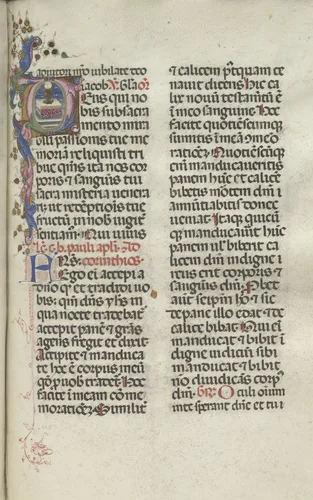 adiutori nr̄o iubilate deo
iacob. Ꝟ. Gl̄a. Or̄
Deus qui no
bis sub sacra
mento mira
bili passionis tue me
moriam reliquisti tri
bue quis ita nos cor
poris et sanguis tui
sacra misteria uenera
ri ut redēptiōis tue
fructū in nob̄ iugit̄
sentiam᷑. Qui uiuis
b. pauli apl̄i. Ad
corinthios.
Frs.
Ego ei accepi a
dn̄o qd̓ et tradidi uo
bis. qm̄ dn̄s yh̄s in
qua nocte tradebat᷑
accepit panē et grās
agens fregit et dixit
Accipite et manduca
te hoc ē corpus meū
qd̓ p̱ uob̄ tradet᷑. Hoc
facite ī meam cōme
moratiōez. Similit̄
et calicem p̄tquam ce
nauit dicens hic ca
lix nouū testam̄tū ē
in meo sanguine. Hoc
facite quotiēscumqꝫ
sumitis ī meā cōmēo
ratiōez. Quotiēscūqꝫ
eī manducaueritis
panem hūc et calicē
bibetis mōtem dn̄i
annūtiabitis donec
ueniat. Itaqꝫ quicū
qꝫ manducauit hūc
panem uel biberit ca
licem dn̄i indigne ī
reus erit corporis et
sanguīs dn̄i. Probet
aut̄ seip̄m hō et sic
de pane illo edat et de
calice bibat. Qui ei
manducat et bibit ī
digne iudiciū sibi
manducat et bibit
nō diiudicās corp᷒
dn̄i. Oculi oīum
in te sperant dn̄e et tu i